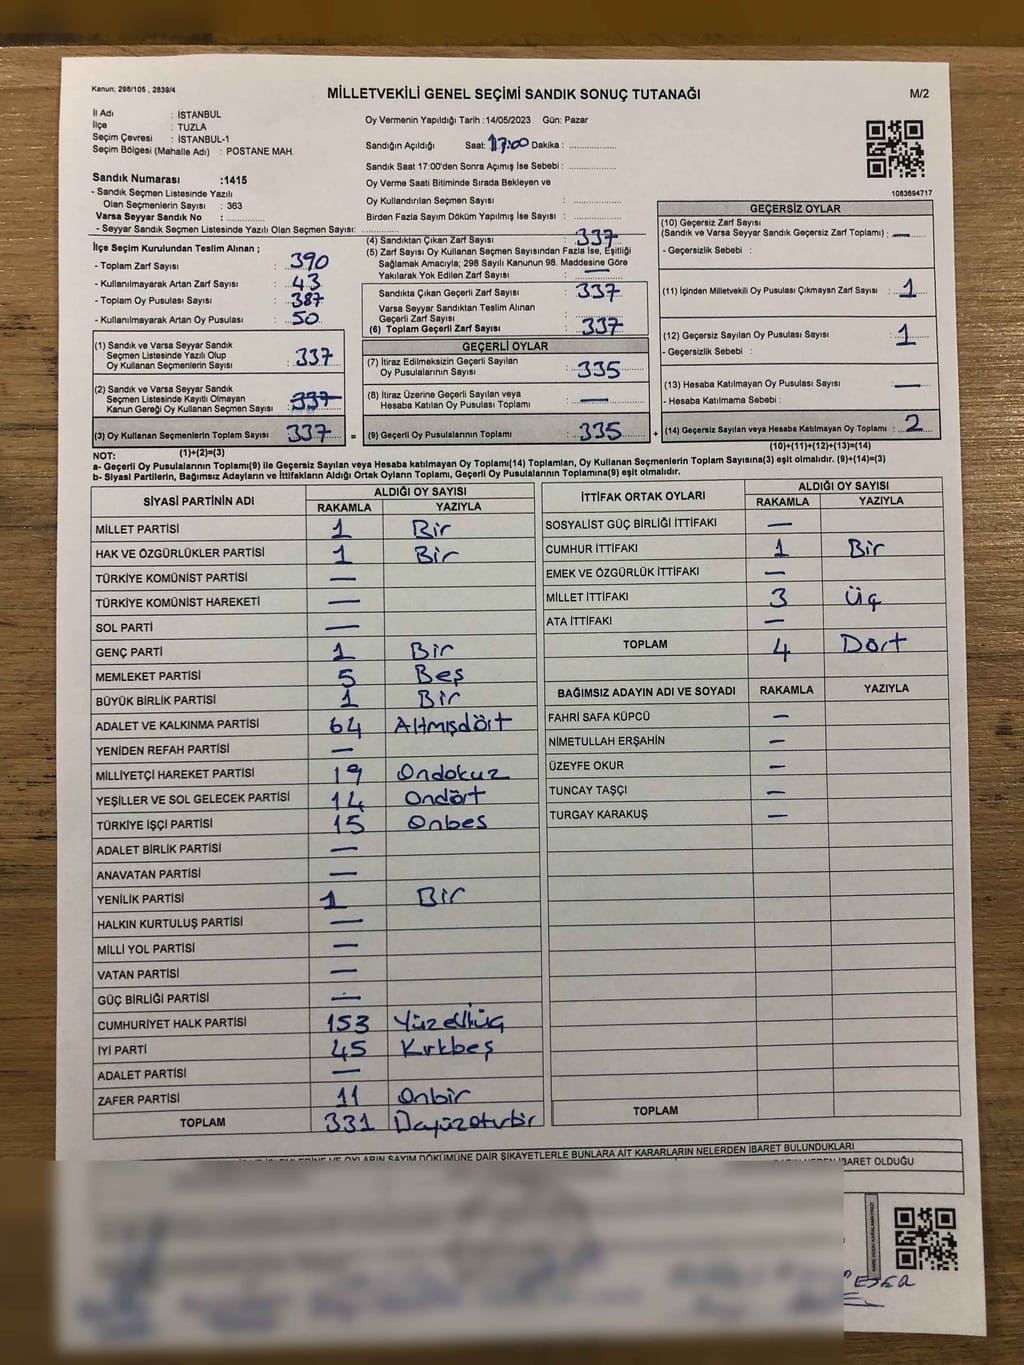 Kanun; 298/105 , 2839/4
MİLLETVEKİLİ GENEL SEÇİMİ SANDIK SONUÇ TUTANAĞI
M/2
İl Adı : İSTANBUL
İlçe : TUZLA
Seçim Çevresi : İSTANBUL-1
Seçim Bölgesi (Mahalle Adı) : POSTANE MAH.
Sandık Numarası :1415
- Sandık Seçmen Listesinde Yazılı
Olan Seçmenlerin Sayısı : 363
Varsa Seyyar Sandık No : ..............
- Seyyar Sandık Seçmen Listesinde Yazılı Olan Seçmen Sayısı: ..............
Oy Vermenin Yapıldığı Tarih :14/05/2023 Gün: Pazar
Sandığın Açıldığı Saat: 17:00 Dakika : ..............
Sandık Saat 17:00'den Sonra Açımış İse Sebebi : ..............
Oy Verme Saati Bitiminde Sırada Bekleyen ve
Oy Kullandırılan Seçmen Sayısı : ..............
Birden Fazla Sayım Döküm Yapılmış İse Sayısı : ..............
1083694717
İlçe Seçim Kurulundan Teslim Alınan ;
- Toplam Zarf Sayısı : 390
- Kullanılmayarak Artan Zarf Sayısı : 43
- Toplam Oy Pusulası Sayısı : 387
- Kullanılmayarak Artan Oy Pusulası : 50
(1) Sandık ve Varsa Seyyar Sandık
Seçmen Listesinde Yazılı Olup
Oy Kullanan Seçmenlerin Sayısı : 337
(2) Sandık ve Varsa Seyyar Sandık
Seçmen Listesinde Kayıtlı Olmayan
Kanun Gereği Oy Kullanan Seçmen Sayısı : 337
(3) Oy Kullanan Seçmenlerin Toplam Sayısı : 337
(4) Sandıktan Çıkan Zarf Sayısı : 337
(5) Zarf Sayısı Oy Kullanan Seçmen Sayısından Fazla İse, Eşitliği
Sağlamak Amacıyla; 298 Sayılı Kanunun 98. Maddesine Göre
Yakılarak Yok Edilen Zarf Sayısı : —
Sandıkta Çıkan Geçerli Zarf Sayısı : 337
Varsa Seyyar Sandıktan Teslim Alınan
Geçerli Zarf Sayısı : ..............
(6) Toplam Geçerli Zarf Sayısı : 337
GEÇERLİ OYLAR
(7) İtiraz Edilmeksizin Geçerli Sayılan
Oy Pusulalarının Sayısı : 335
(8) İtiraz Üzerine Geçerli Sayılan veya
Hesaba Katılan Oy Pusulası Toplamı : —
= (9) Geçerli Oy Pusulalarının Toplamı : 335
GEÇERSİZ OYLAR
(10) Geçersiz Zarf Sayısı
(Sandık ve Varsa Seyyar Sandık Geçersiz Zarf Toplamı) : —
- Geçersizlik Sebebi :
(11) İçinden Milletvekili Oy Pusulası Çıkmayan Zarf Sayısı : 1
(12) Geçersiz Sayılan Oy Pusulası Sayısı : 1
- Geçersizlik Sebebi :
(13) Hesaba Katılmayan Oy Pusulası Sayısı : —
- Hesaba Katılmama Sebebi :
+ (14) Geçersiz Sayılan veya Hesaba Katılmayan Oy Toplamı : 2
NOT: (1)+(2)=(3)
(10)+(11)+(12)+(13)=(14)
a- Geçerli Oy Pusulalarının Toplamı(9) ile Geçersiz Sayılan veya Hesaba katılmayan Oy Toplamı(14) Toplamları, Oy Kullanan Seçmenlerin Toplam Sayısına(3) eşit olmalıdır. (9)+(14)=(3)
b- Siyasi Partilerin, Bağımsız Adayların ve İttifakların Aldığı Ortak Oyların Toplamı, Geçerli Oy Pusulalarının Toplamına(9) eşit olmalıdır.
SİYASİ PARTİNİN ADI ALDIĞI OY SAYISI
RAKAMLA YAZIYLA
MİLLET PARTİSİ 1 Bir
HAK VE ÖZGÜRLÜKLER PARTİSİ 1 Bir
TÜRKİYE KOMÜNİST PARTİSİ —
TÜRKİYE KOMÜNİST HAREKETİ —
SOL PARTİ —
GENÇ PARTİ 1 Bir
MEMLEKET PARTİSİ 5 Beş
BÜYÜK BİRLİK PARTİSİ 1 Bir
ADALET VE KALKINMA PARTİSİ 64 Altmışdört
YENİDEN REFAH PARTİSİ —
MİLLİYETÇİ HAREKET PARTİSİ 19 Ondokuz
YEŞİLLER VE SOL GELECEK PARTİSİ 14 Ondört
TÜRKİYE İŞÇİ PARTİSİ 15 Onbes
ADALET BİRLİK PARTİSİ —
ANAVATAN PARTİSİ —
YENİLİK PARTİSİ 1 Bir
HALKIN KURTULUŞ PARTİSİ —
MİLLİ YOL PARTİSİ —
VATAN PARTİSİ —
GÜÇ BİRLİĞİ PARTİSİ —
CUMHURİYET HALK PARTİSİ 153 Yüzelliüç
İYİ PARTİ 45 Kırkbeş
ADALET PARTİSİ —
ZAFER PARTİSİ 11 Onbir
TOPLAM 331
İTTİFAK ORTAK OYLARI ALDIĞI OY SAYISI
RAKAMLA YAZIYLA
SOSYALİST GÜÇ BİRLİĞİ İTTİFAKI —
CUMHUR İTTİFAKI 1 Bir
EMEK VE ÖZGÜRLÜK İTTİFAKI —
MİLLET İTTİFAKI 3 Üç
ATA İTTİFAKI —
TOPLAM 4 Dört
BAĞIMSIZ ADAYIN ADI VE SOYADI RAKAMLA YAZIYLA
FAHRİ SAFA KÜPCÜ —
NİMETULLAH ERŞAHİN —
ÜZEYFE OKUR —
TUNCAY TAŞÇI —
TURGAY KARAKUŞ —
TOPLAM
OYLARIN SAYIM DÖKÜMÜNE DAİR ŞİKAYETLERLE BUNLARA AİT KARARLARIN NELERDEN İBARET BULUNDUKLARI
NEDEN İBARET OLDUĞU